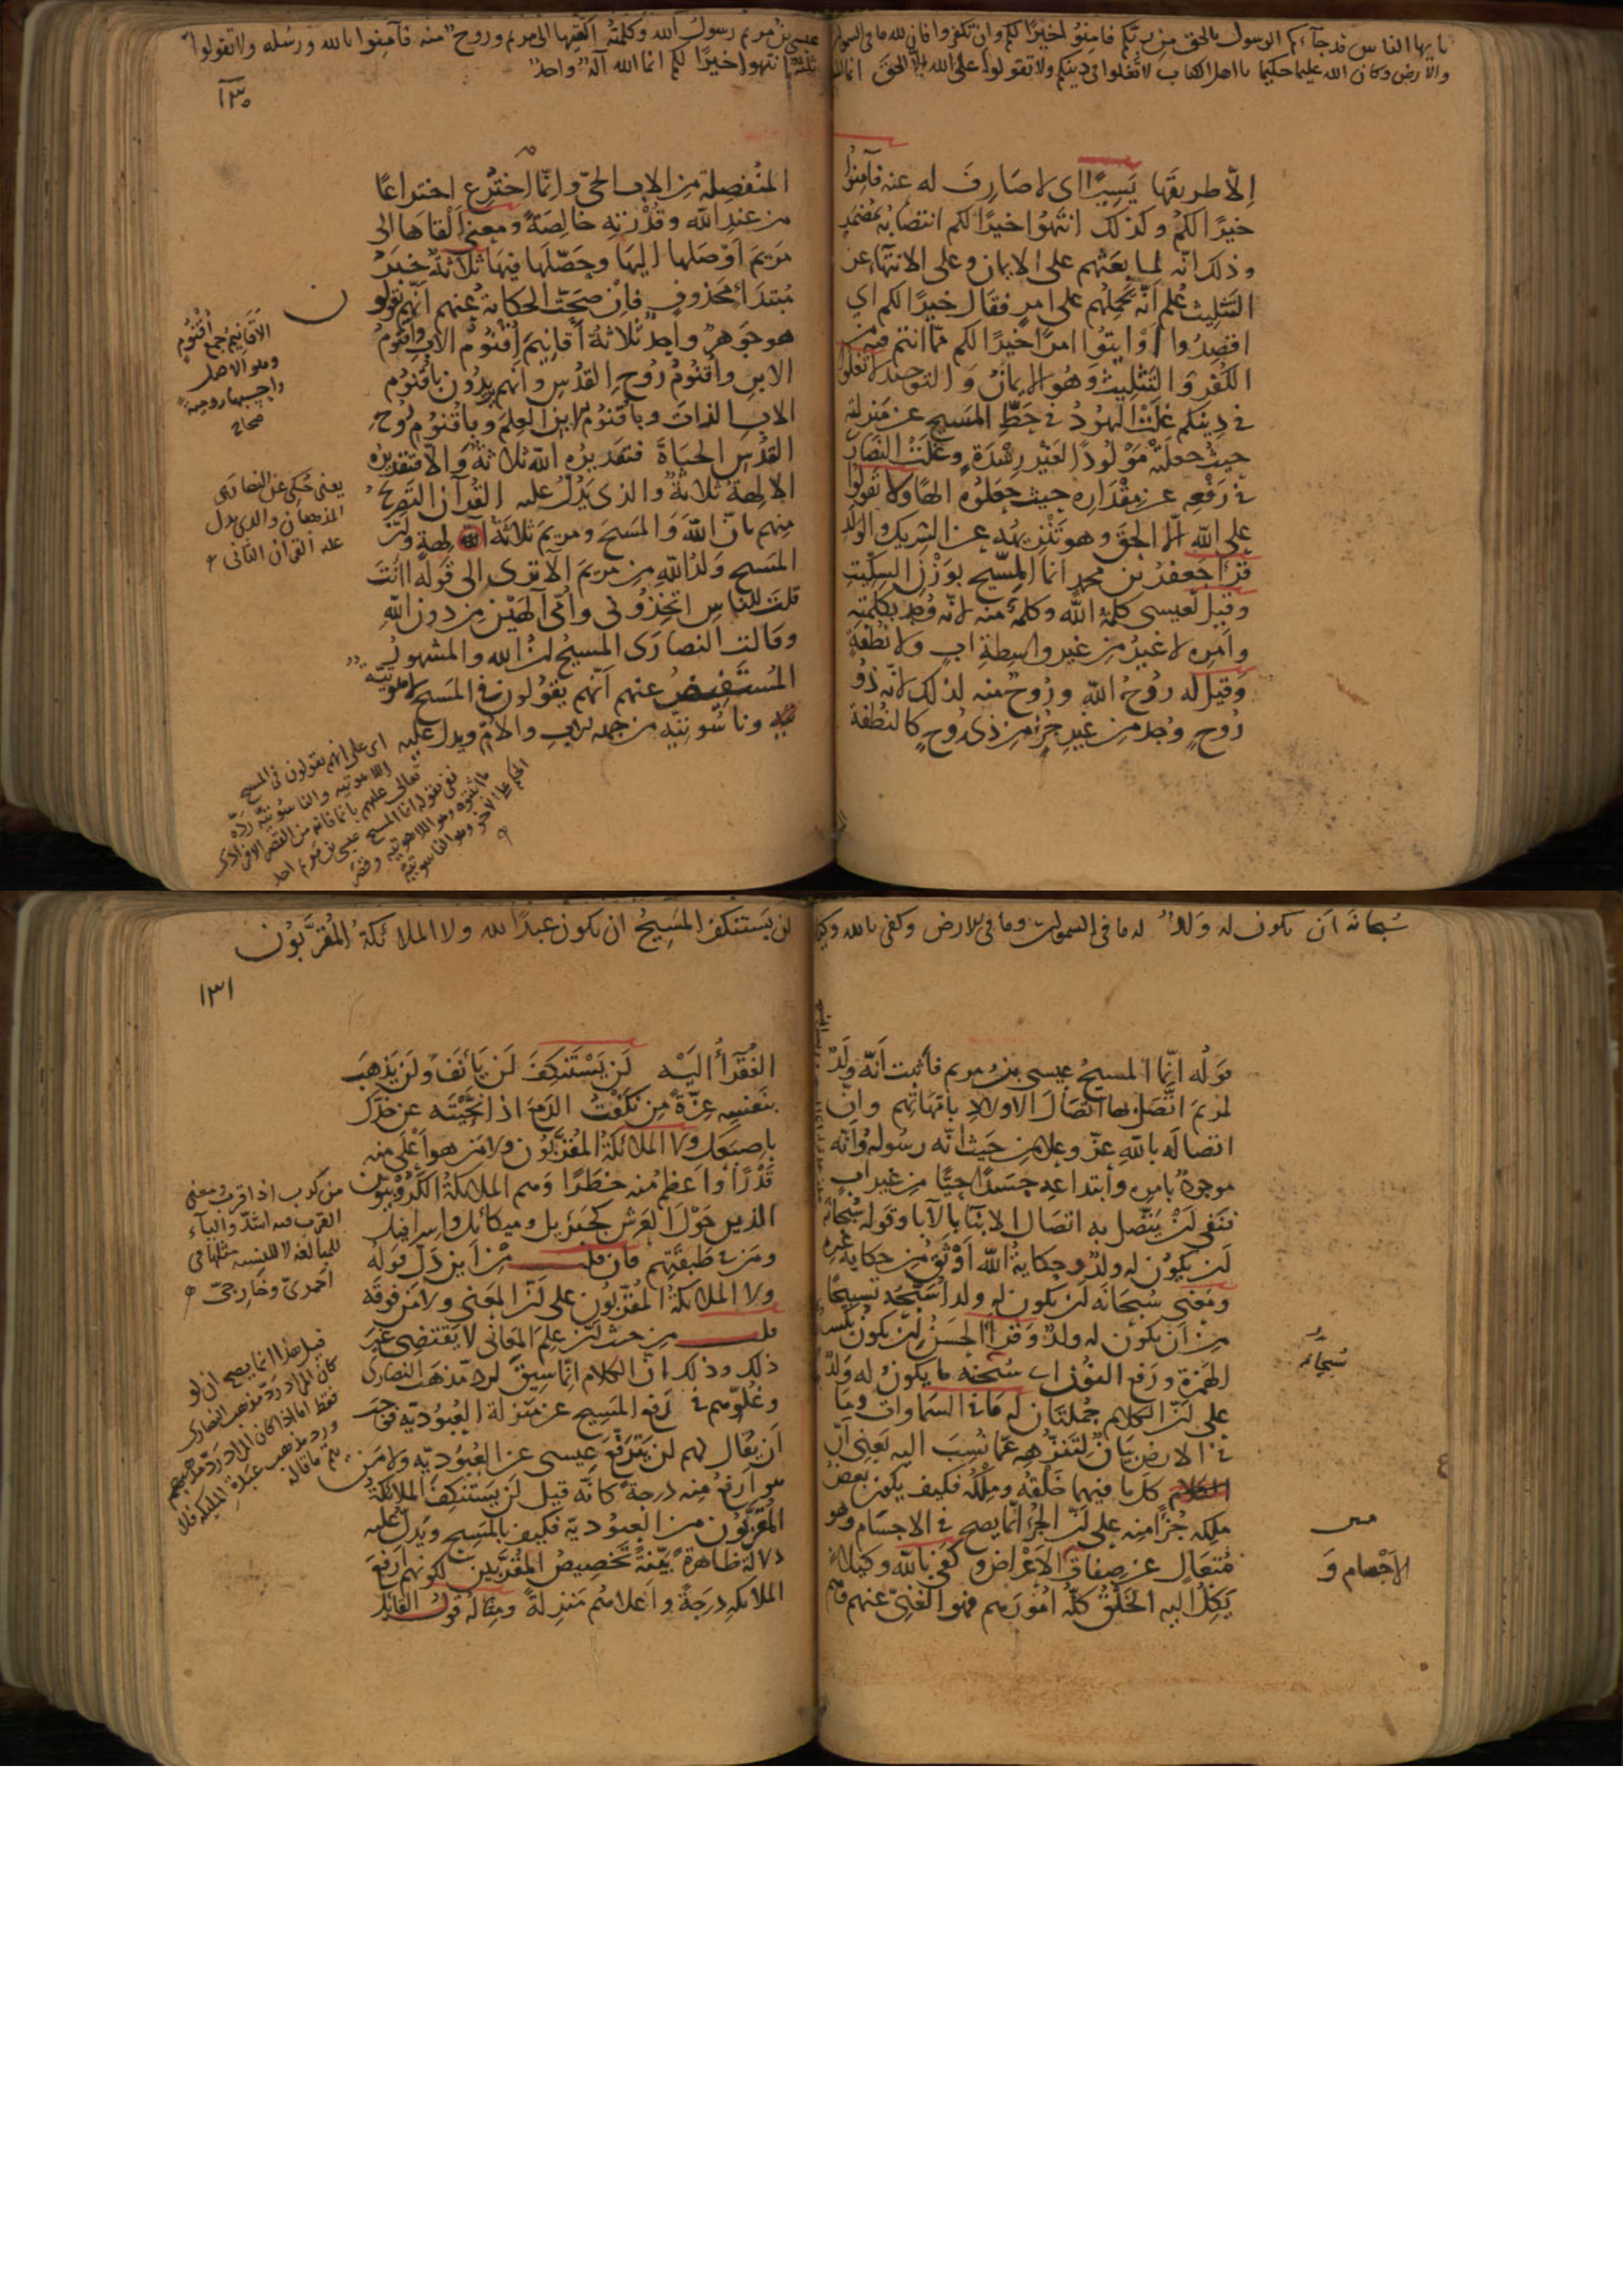 يا يها الناس قد جآءكم الرسول بالحق من ربكم فامنوا خيرا لكم وان تكفروا فان لله ما فى السموات
والارض وكان الله عليما حكيما يا اهل الكتاب لا تغلوا فى دينكم ولا تقولوا على الله الا الحق انما
اِلّا طريقَها يَسِيرًا اى لا صَارِفَ له عنه فآمِنُوا
خيرًا لكُم وكذلك انتَهُوا خيرًا لكم انتصَابُه بمُضمَرٍ
وذلك انّه لما بعَثهم على الايمان وعلى الانتهآء عن
التثلِيث عُلم انّه يَحمِلُهم على امرٍ فقَال خيرًا لكم اى
اقصِدُوا أوْ ايتُوا امرًا خيرًا لكم ممّا انتم فيه من
الكُفر وَالتثلِيث وَهُو الايمانُ وَالتوحيد لا تغلُوا
فى دِينكم غلَتْ اليَهودُ فى حَطِّ المسَيح عن منزلته
حيثُ جعلَتْه مَوْلُودًا لغَيْر رِشْدَةٍ وغَلَتْ النصَارى
فى رَفعِهِ عن مِقْدَارِه حيث جعَلوُه الهًا ولا تقولوا
على الله الّا الحق وهو تَنْزيهُه عن الشريك والولد
قرَا جَعفرُ بن محمد انما المِسّيح بوَزْن السِكِّيت
وقيل لعيسى كلمةُ الله وكلمةٌ منه لانّه وُجد بكلمتِه
واَمرِه لا غيرُ من غير واسِطةِ ابٍ ولا نُطْفةٍ
وَقيلَ له رُوحُ الله ورُوحٌ منه لذلك لانّه ذُو
رُوحٍ وُجد من غيرِ جُزءٍ من ذى رُوحٍ كالنُطفة
عيسى بن مريم رسول الله وكلمته القيها الى مريم وروح منه فآمنوا بالله ورسله ولا تقولوا
ثلثة انتهوا خيرًا لكم انما الله اله واحد
١٣٠
المنُفصِلة من الاب الحىّ وانّمَا اختُرِع اختراعًا
من عندِ الله وقُدْرَتِه خَالِصَةً ومعنى اَلقاهَا الى
مَريمَ اَوْصَلها اليهَا وحَصّلَها فيهَا ثلاثةٌ خَبَرُ
مُبتدَأٍ مَحذوفٍ فاِنْ صَحّت الحكاية عنهم انّهم يقولون
هو جَوهرٌ واحِدٌ ثلاثةُ اَقانِيمَ اُقنُوم الاب واُقنُوم
الابن واُقنُومُ رُوح القدُس وانهم يريدُون باُقنُوم
الاب الذاتَ وباُقنُوم الابن العِلمَ وباُقنُوم رُوح
القدُس الحيَاةَ فتقديرُه الله ثلاثةٌ وَاِلّا فتقديرُه
الالِهةُ ثلاثةٌ والذى يَدُلّ عليه القُرآن التصريحُ
مِنهم بانّ اللهَ وَالمسَيحَ ومريمَ ثلاثَةُ الهة وانّ
المسَيح وَلدُ اللهِ من مريمَ الَا ترى الى قوله اانتَ
قلتَ للناسِ اتّخِذُونى واُمّى الهَيْن من دون اللهِ
وقالت النصارَى المسيحُ ابنُ الله والمشهورُ
المُستَفِيضُ عنهم اَنّهم يقوُلونَ فى المسَيح لاهُوتيّة
وناسُوتيّة من جهة الاب والامّ ويدلّ عليه
الاَقَانِيمُ جَمع اُقنُوم
وهو الاصل
واحسبها روميةً
صحاح
يعنى حُكى عن النصارى
المذهبان والذى يدل
عليه القرآن الثانى
اى على انهم يقولون فى المسيح
اللاهوتيه والناسوتيّة ردّه
تعالى عليهم بانما فانه من القصر الافرادى
نفى بقوله انما المسيح عيسى بن مريم احد
ما اثبتوه وهو اللاهوتيه وقصَر
الحكم على الآخر وهو الناسوتيّة
سُبحانه اَن يكون له وَلدٌ له ما فى السموات وما فى الارض وكفى بالله وكيلا
قوَلُه انمّا المسيحُ عيسى بنُ مريم فاَثبت اَنّه وَلَدٌ
لمريَمَ اتّصَل بها اتصَالَ الاولادِ باُمّهَاتهم وانّ
اتصَالَه باللهِ عزّ وعلا من حَيث انّه رسُوله وَانّه
موجودٌ بامرِه وابتداعِهِ جسَدًا حيًّا من غير ابٍ
فنَفى اَنْ يتّصل به اتصَال الابنَآء بالآباء وقوله سُبحانَه
اَن يكوُن له ولدٌ وحكايةُ الله اَوْثَقُ من حكاية غيره
ومَعنى سُبحَانه اَن يكون له ولد اُسَبّحُه تسبيحًا
من اَن يكون له ولدٌ وَقرأ الحَسنُ اِن يكونُ بكسر
الهَمزة ورَفع النوُن اى سُبحَنه ما يكونُ له وَلدٌ
على انّ الكلامَ جُملتانِ له مَا فى السمَاوات ومَا
فى الارض بيَانٌ لتَنزُّهِهِ عمّا نُسِبَ اليه يَعنى انّ
كلّ ما فيهما خَلْقُه ومِلْكُه فكيف يكون بعضُ
مِلكِه جُزءًا منه على انّ الجُزءَ انّما يصح فى الاجسَام وهو
مُتعَالٍ عن صِفات الاَعْراض وكفَى بالله وكيلا
يَكِلُ اليه الخَلقُ كلّه امُوُرَهم فهو الغَنىّ عنهم وهم
سُبحَانه
الاَجْسام وَ
لن يَستنكف المسَيحُ ان يكون عبدًا لله ولا الملائكة المُقرّبوُن
١٣١
الفُقَرَآءُ اليَه لَن يَسْتَنكِفَ لَن يَأنَفَ ولَن يَذهَبَ
بنفسِهِ عزّةً مِن نكَفْتُ الدَمعَ اذا نَحّيْتَه عن خدّك
باِصبَعِك ولا الملائكةُ المقُرّبوُن ولا مَن هو اَعْلَى منه
قَدْرًا واَعظمُ منه خَطَرًا وَهم الملائكةُ الكَرُوبِيّون
الذين حَوْلَ العَرش كجَبرئيل وميكائيل واِسرافيل
ومَن فى طَبقَتِهم فان قلت من اَين دَلّ قوله
ولا الملائكةُ المُقرّبوُن على انّ المعَنى ولا مَن فوقَه
قلت من حيث انّ عِلمَ المَعانى لا يَقتضِى غيرَ
ذلك وذلك انّ الكلام انمّا سِيقَ لردّ مَذهَب النصارى
وغُلُوّهم فى رَفع المَسِيح عن مَنزلة العُبُوديّة فوجَب
اَن يُقال لهم لن يَتَرفّعَ عيسى عن العبُوديّه ولا مَن
هو اَرفعُ مِنه درجةً كانّه قيل لَن يَستَنكِفَ الملائكةُ
المُقرّبُون من العبُوديّة فكيف بالمسَيح ويَدلّ عليه
دلالةً ظاهرةً بيّنةً تخصيصُ المُقرّبين لكونهم اَرفعَ
الملائكة درَجةً واَعْلاهُم مَنزلةً ومِثَاله قول القائل
من كرب اذا قرب ومعنى
القرب فيه اشدّ والياء
للمبالغة لا للنسبة مثلها فى
اَحمرىّ وخارجىّ
قيل هذا انما يصح ان لو
كان المراد ردّ مذهب النصارى
فقط اما اذا كان المراد ردّ مذهبهم
ورد مذهب عبَدة الملئكة فلا
يتم ما قاله